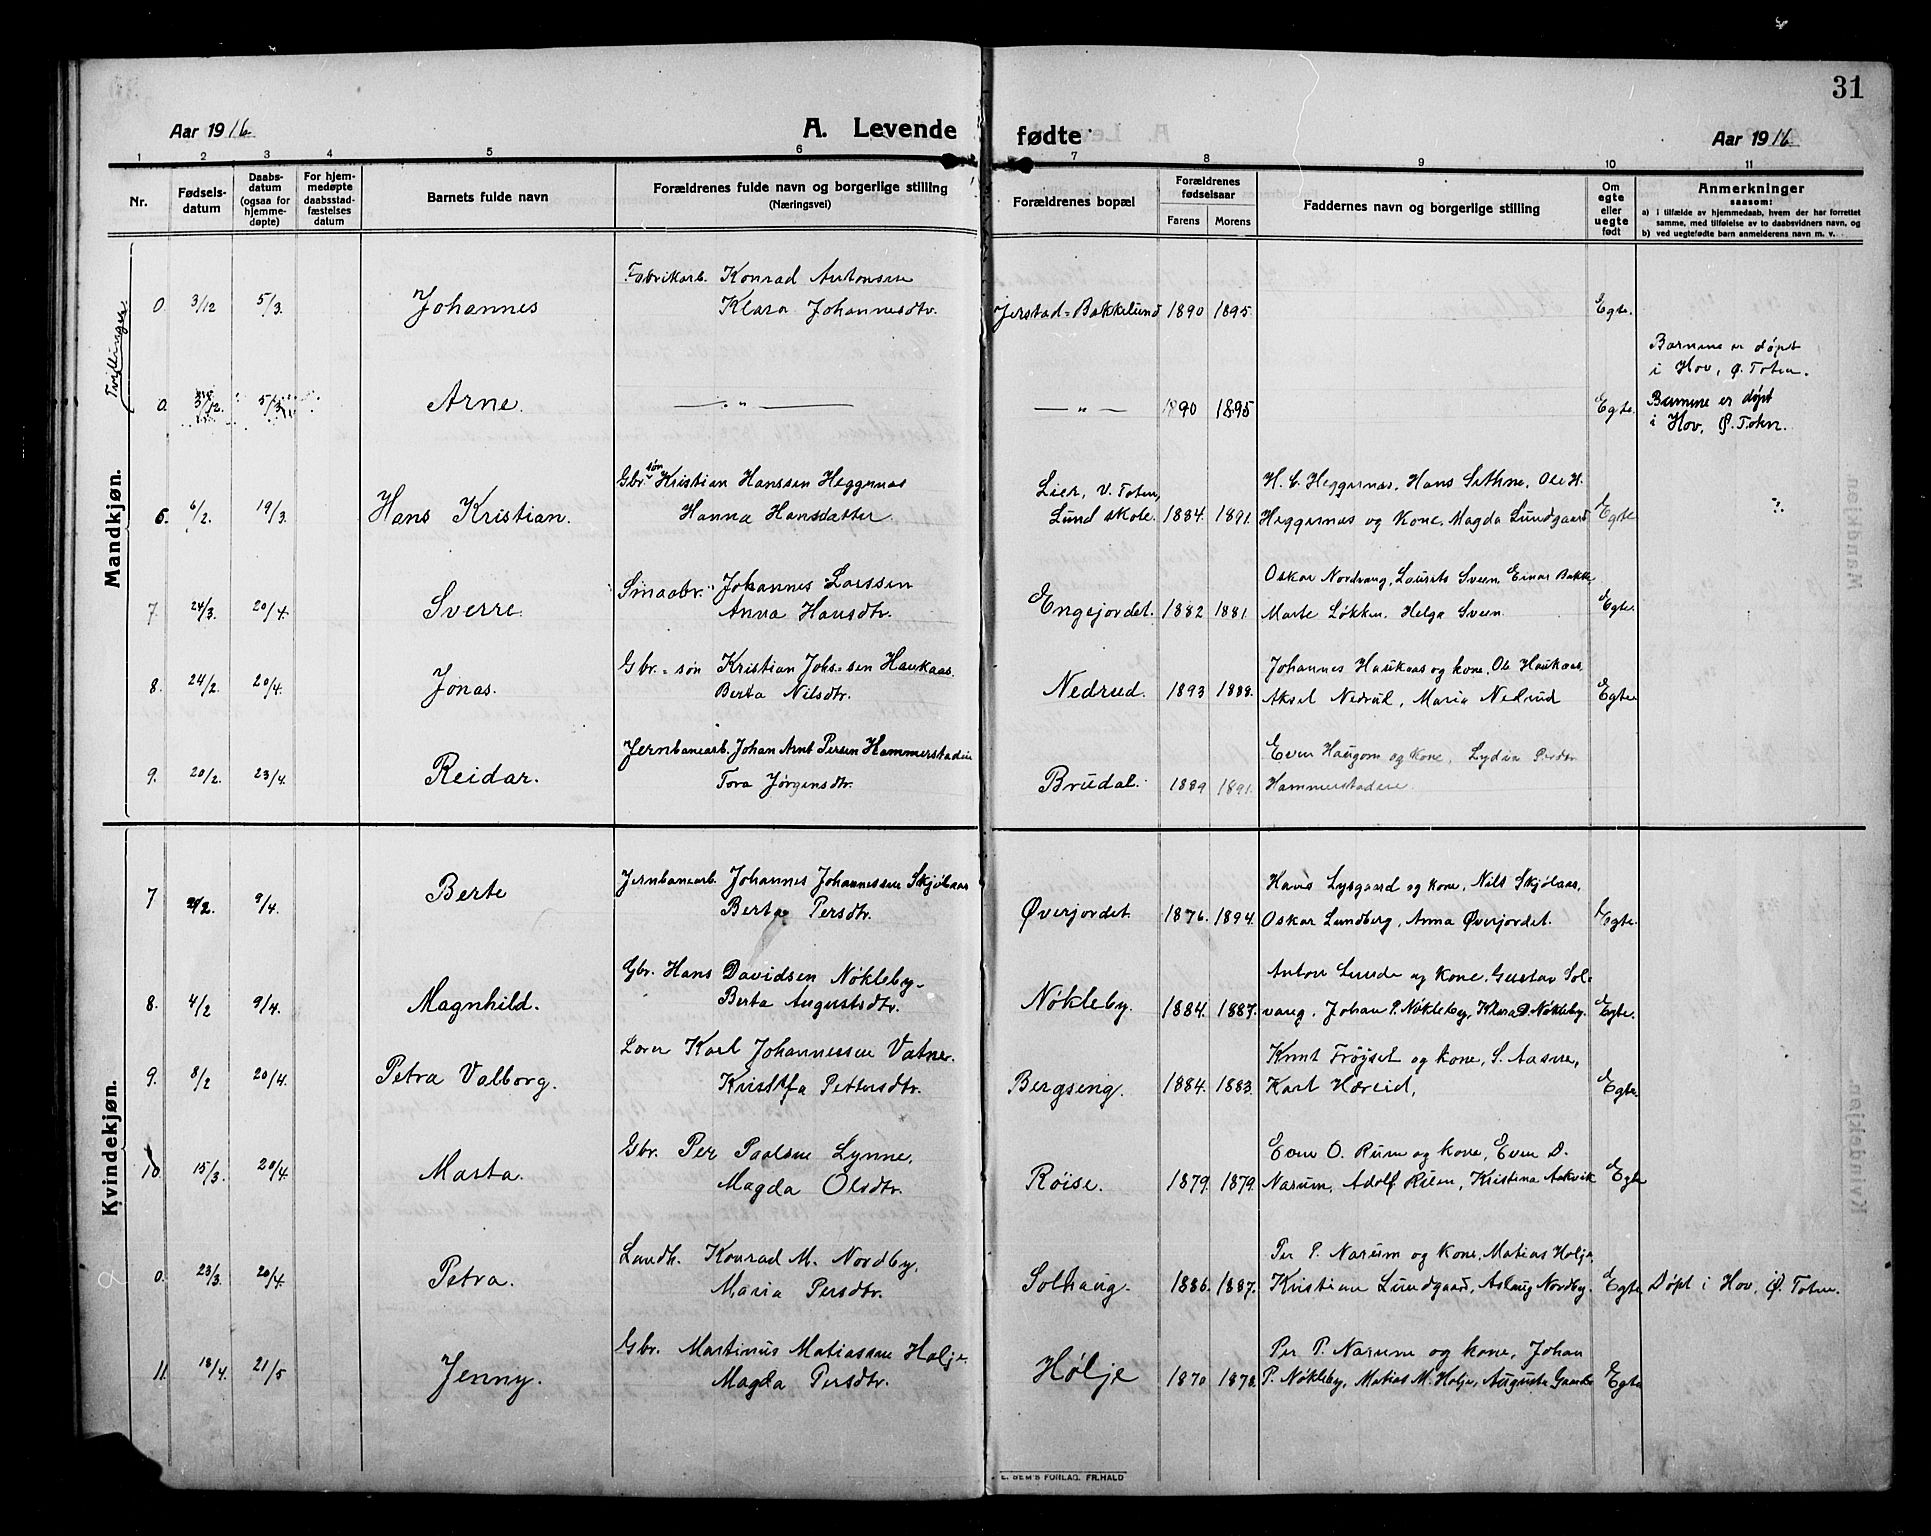 31
Aar 1916
A. Levende fødte
Aar 1916
1 2 3 4 5 6 7 8 9 10 11
Nr.
Fødsels-
datum
Daabs-
datum
(ogsaa for
hjemme-
døpte)
For hjem-
medøpte
daabsstad-
fæstelses
datum
Barnets fulde navn
Forældrenes fulde navn og borgerlige stilling
(Næringsvei)
Forældrenes bopæl
Forældrenes
fødselsaar
Farens Morens
Faddernes navn og borgerlige stilling
Om
egte
eller
uegte
født
Anmerkninger
saasom:
a) i tilfælde av hjemmedaab, hvem der har forrettet
samme, med tilføielse av to daabsvidners navn, og
b) ved uegtefødte barn anmelderens navn m. v.
Mandkjøn.
Tvillinger.
Fabrikarb. Konrad Antonsen
0. 3/12 5/3. Johannes Klara Johannesdtr. Jerstad=Bakkelund 1890 1895. Egte.
Barnene er døpt
i Hov, Ø. Toten.
0. 3/12. 5/3 Arne. — „ — — „ — 1890 1895 Egte.
Barnene er døpt
i Hov, Ø. Toten.
Gbr. søn Kristian Hanssen Heggernæs Lier, V. Toten, H. C. Heggernæs, Hans Sethne, Ole H.
6. 6/2. 19/3. Hans Kristian. Hanna Hansdatter. Lund skole. 1884. 1891. Heggernæs og Kone, Magda Lundgaard Egte
Smaabr. Johannes Larssen Oskar Nordvang, Laurits Sveen, Einar Bakke
7. 24/3. 20/4. Sverre. Anna Hansdtr. Engejordet. 1882 1881. Marte Løkken, Helga Sveen. Egte.
Gbr.=søn Kristian Johs=sen Haukaas. Johannes Haukaas og kone, Ole Haukaas
8. 24/2. 20/4. Jonas. Berta Nilsdtr. Nedrud. 1893 1888. Aksel Nedrud, Maria Nedrud Egte
Jernbanearb. Johan Arnt Persen Hammerstadeie Even Haugom og kone, Lydia
9. 20/2. 23/4. Reidar. Tora Jørgensdtr. Brudal. 1889 1891. Hammerstadeie.
Kvindekjøn.
Jernbanearb. Johannes Johannessen Skjølaas Hans Lysgaard og kone, Nils Skjølaas,
7 9/4. Berte Berte Persdtr. Øverjordet. 1876. 1894. Oskar Lundberg, Anna Øverjordet. Egte.
Gbr. Hans Davidsen Nøkleby. Anton Lunde og kone, Gustav Sol-
8. 4/2 9/4. Magnhild. Berta Augustsdtr. Nøkleby. 1884. 1887. vang, Johan P. Nøkleby, Klara D. Nøkleby. Egte.
Lærer Karl Johannessen Vatne. Knut Frøyset og kone, S. Aasne,
9. 8/2 20/4. Petra Valborg. Kristofa Pettersdtr. Bergseng. 1884. 1883. Karl Hæreid, Egte.
Gbr. Per Paalsen Lynne, Even O. Rum og kone, Even D.
10. 15/3. 20/4. Marta. Magda Olsdtr. Røise. 1879. 1879. Narum, Adolf Rilen, Kristina Aakvik Egte
Landh. Konrad M. Nordby, Per P. Narum og kone, Matias Holje,
0. 23/3. 20/4. Petra. Maria Persdtr. Solhaug. 1886. 1887. Kristian Lundgaard, Aslaug Nordby. Egte Døpt i Hov, Ø. Toten.
Gbr. Martinus Matiassen Holje Per P. Narum og kone, Johan
11. 18/4. 21/5 Jenny. Magda Persdtr. Hølje 1870 1878. P. Nøkleby, Matias M. Holje, Augusta Egte
E. SEM'S FORLAG. FR.HALD